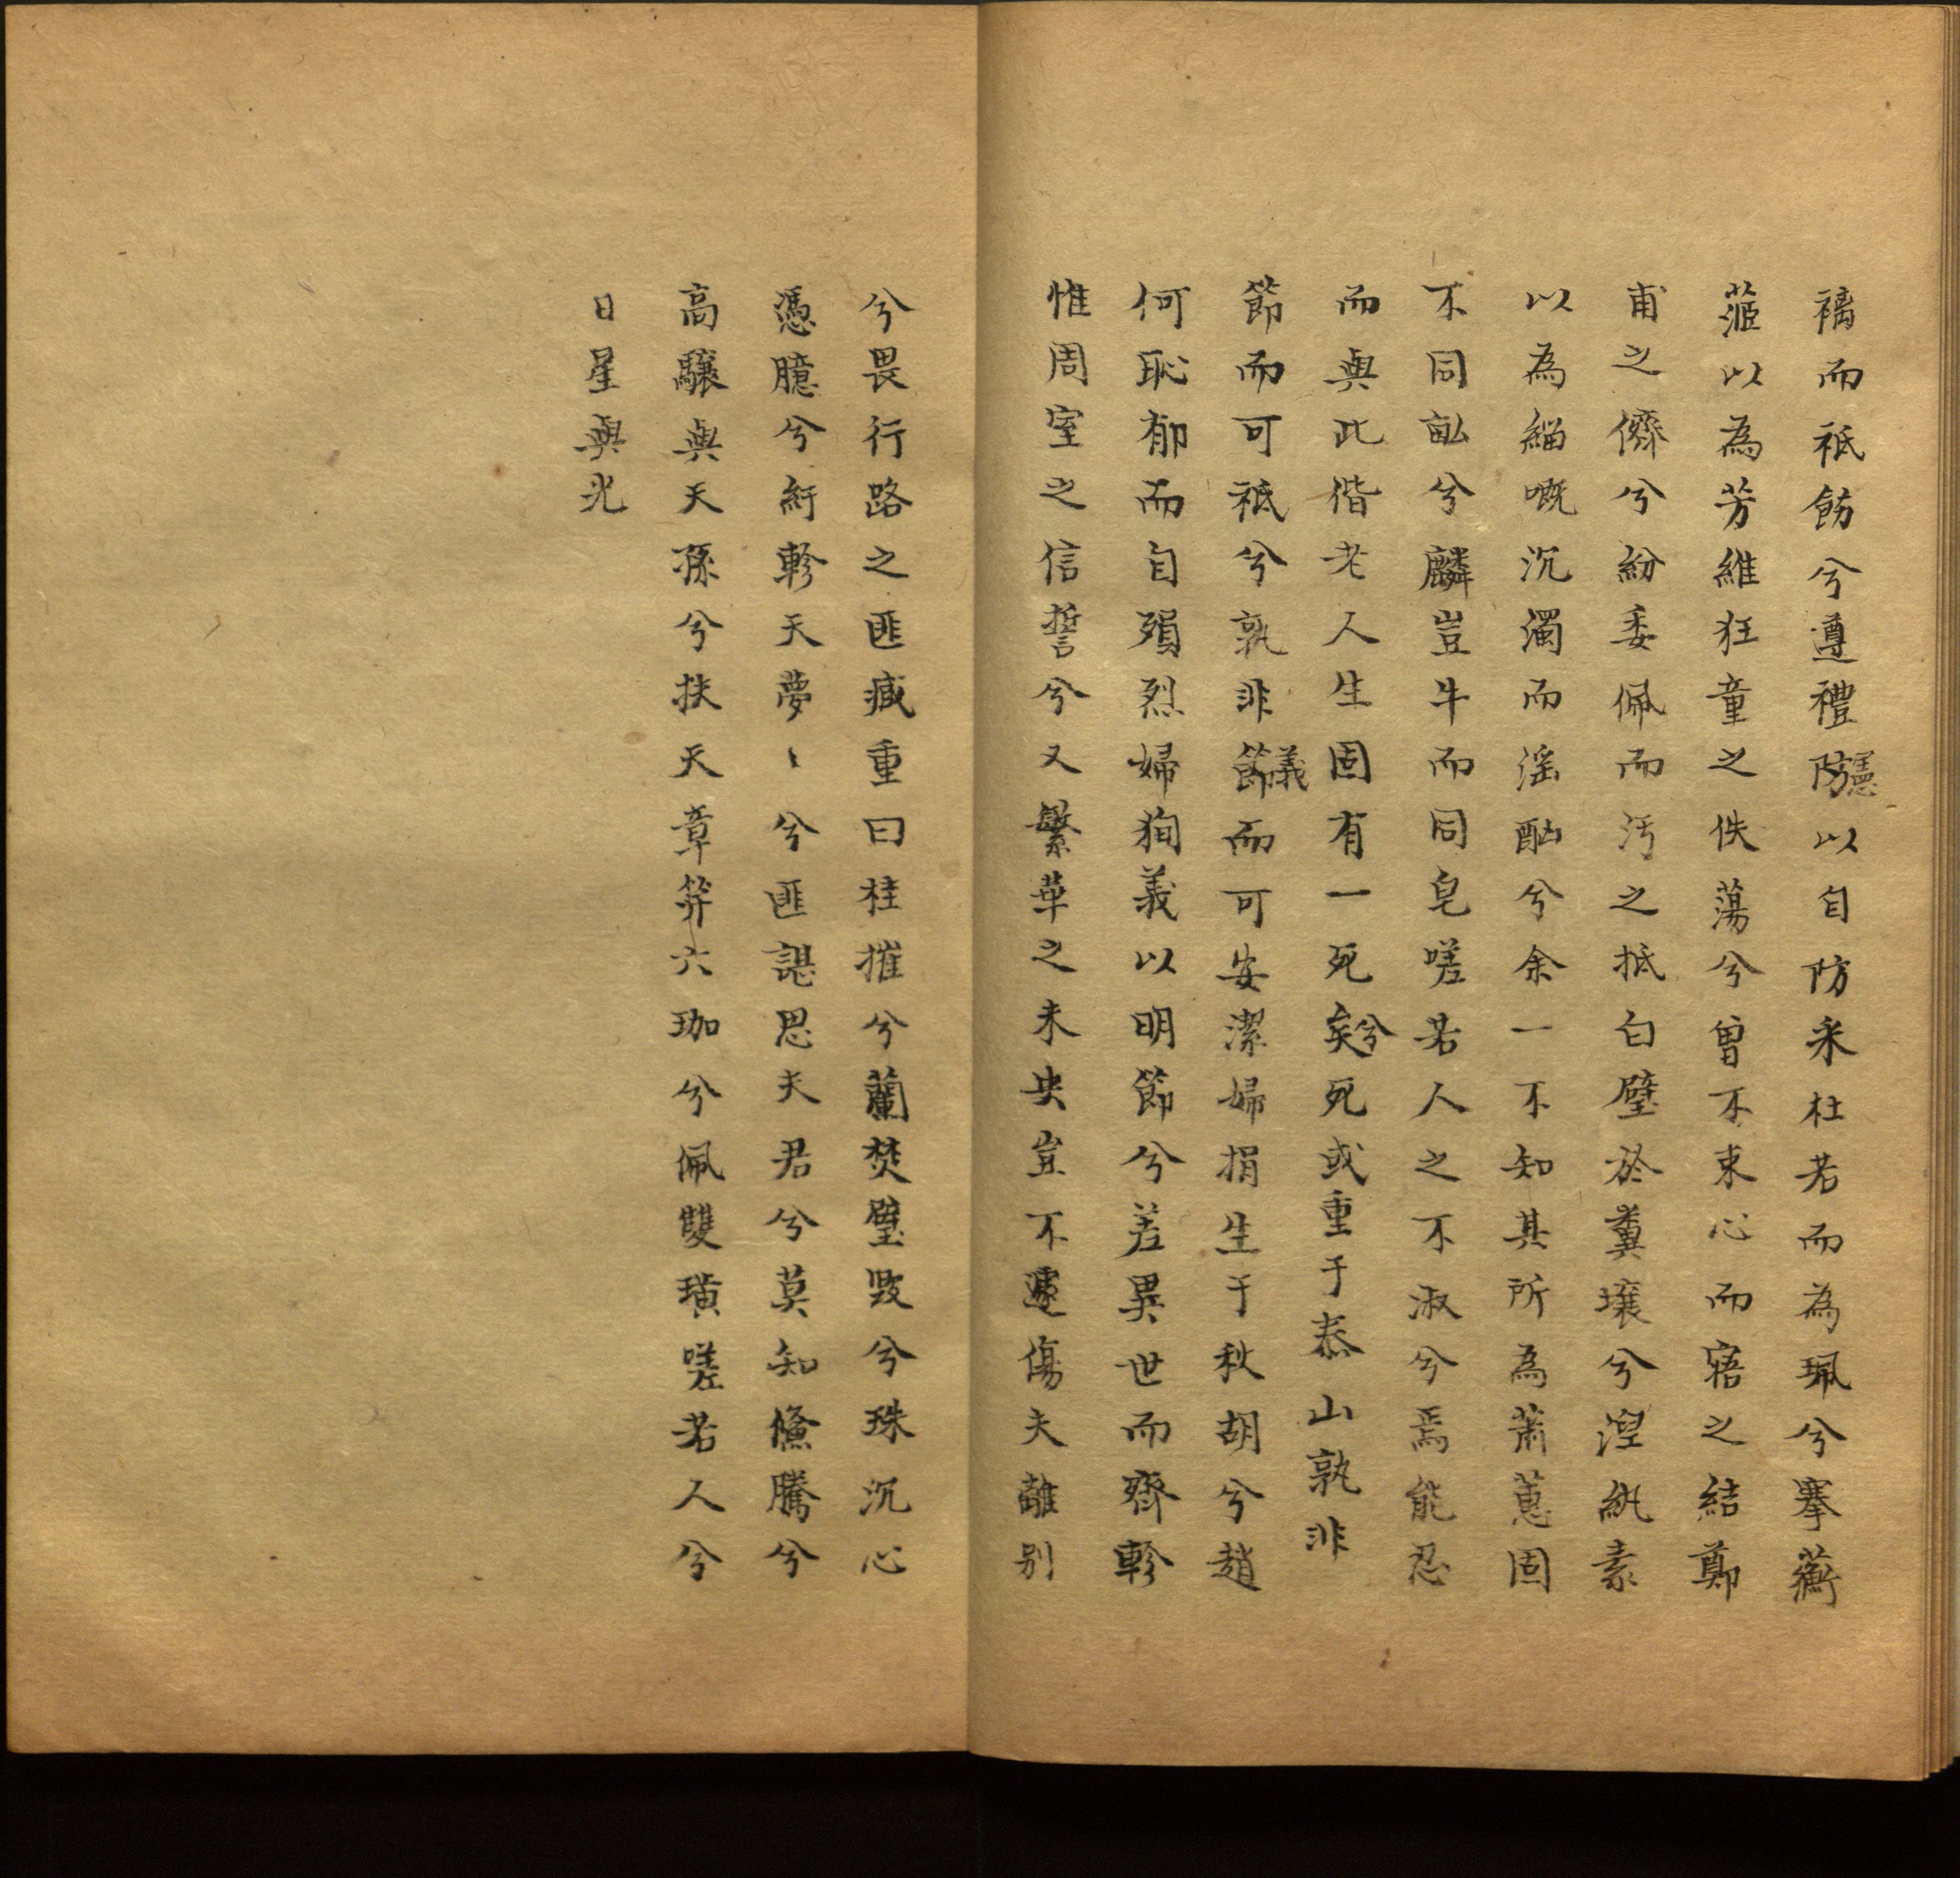 褵而祗飭兮遵禮防憲以自防采杜若而為珮兮搴蘅
蒞以為芳維狂童之佚蕩兮曾不束心而寤之結鄭
甫之儕兮紛委佩而污之抵白璧於糞壤兮涅紈素
以為緇嘅沉濁而滛酗兮余一不知其所為蕭蕙固
不同畝兮麟豈牛而同皂嗟若人之不淑兮焉能忍
而與此偕老人生固有一死矣兮死或重于泰山孰非
節而可祗兮孰非節義而可安潔婦捐生于秋胡兮趙
何恥郁而自殞烈婦狥義以明節兮差異世而齊軫
惟周室之信誓兮又繁華之未央豈不遽傷夫離別
兮畏行路之匪臧重曰桂摧兮蘭焚璧毀兮珠沉心
憑臆兮紆軫天夢〻兮匪諶思夫君兮莫知儵騰兮
高驤與天孫兮扶天章笄六珈兮佩雙璜嗟若人兮
日星與光